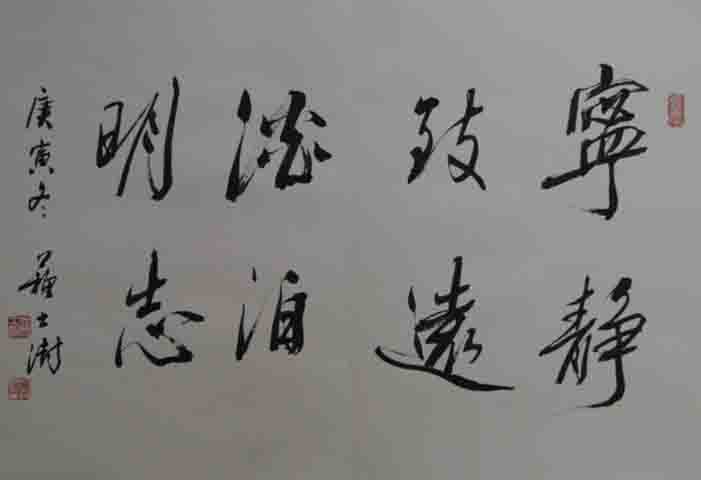 寧靜
致遠
淡泊
明志
庚寅冬 蘇士澍